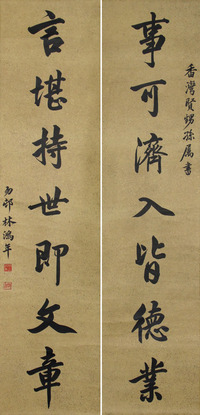 灣賢甥孫屬書
事可濟人皆德業
言堪持世即文章
勿邨林鴻年